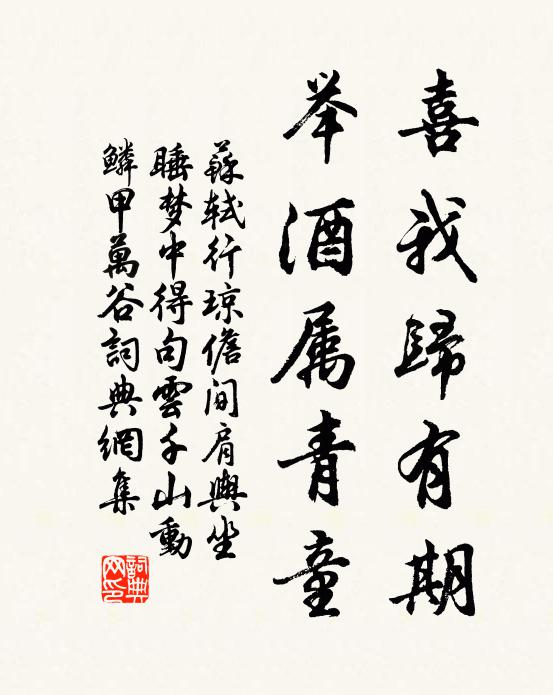 喜我歸有期
举酒属青童
蘇軾行琼儋间肩輿坐
睡梦中得句雲千山動
鱗甲萬谷詞典網集
詞典
网印